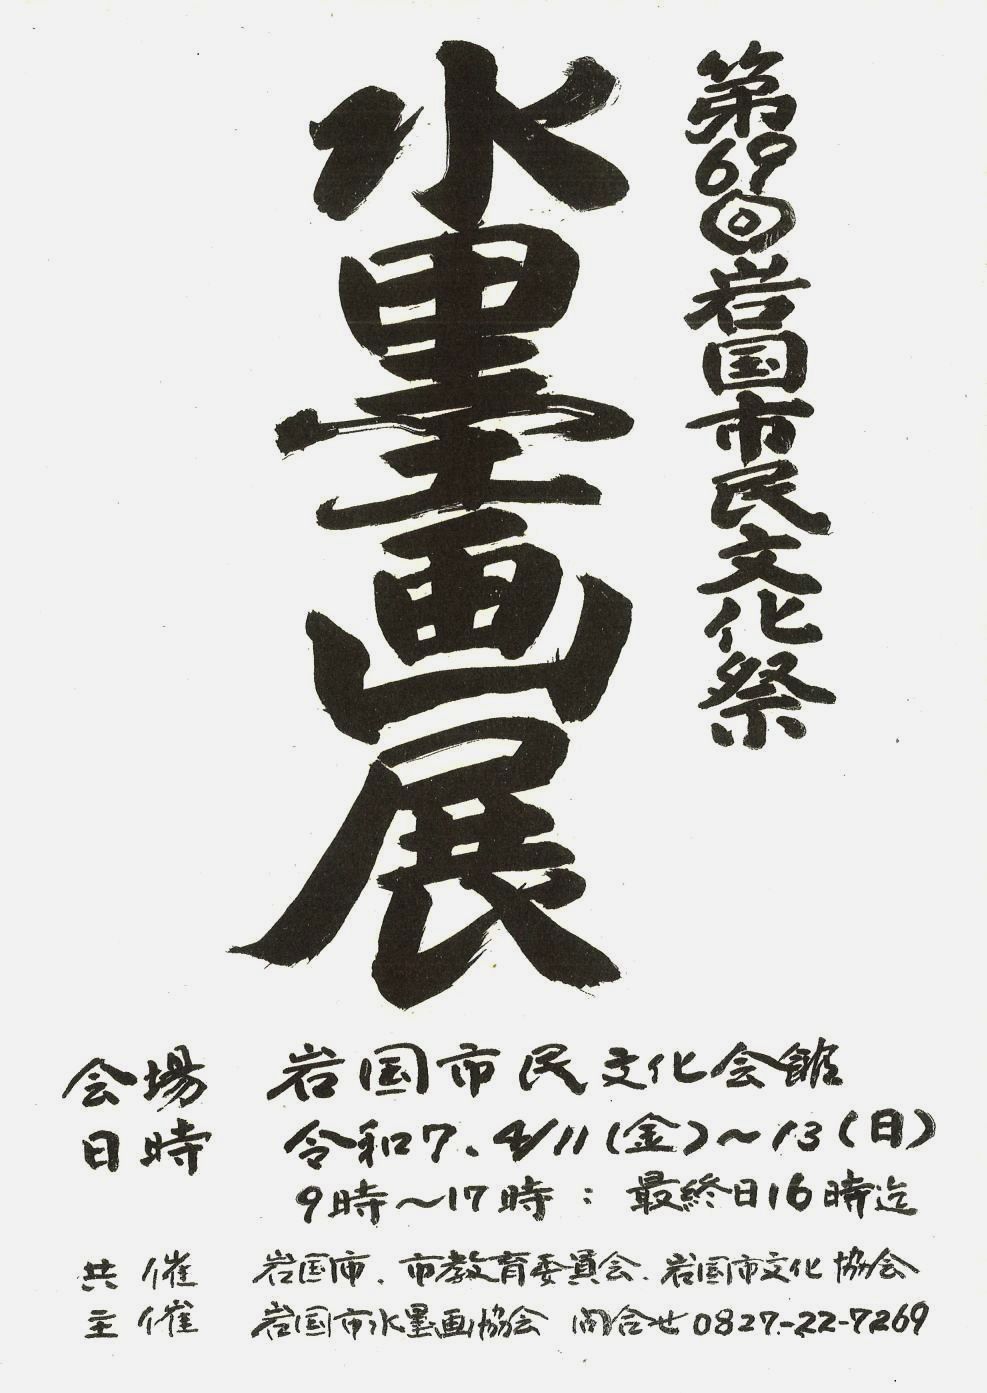 第69回岩国市民文化祭
水墨画展
会場 岩国市民文化会館
日時 令和7.4/11(金)~13(日)
9時~17時:最終日16時迄
共催 岩国市.市教育委員会.岩国市文化協会
主催 岩国市水墨画協会 問合せ0827-22-7269